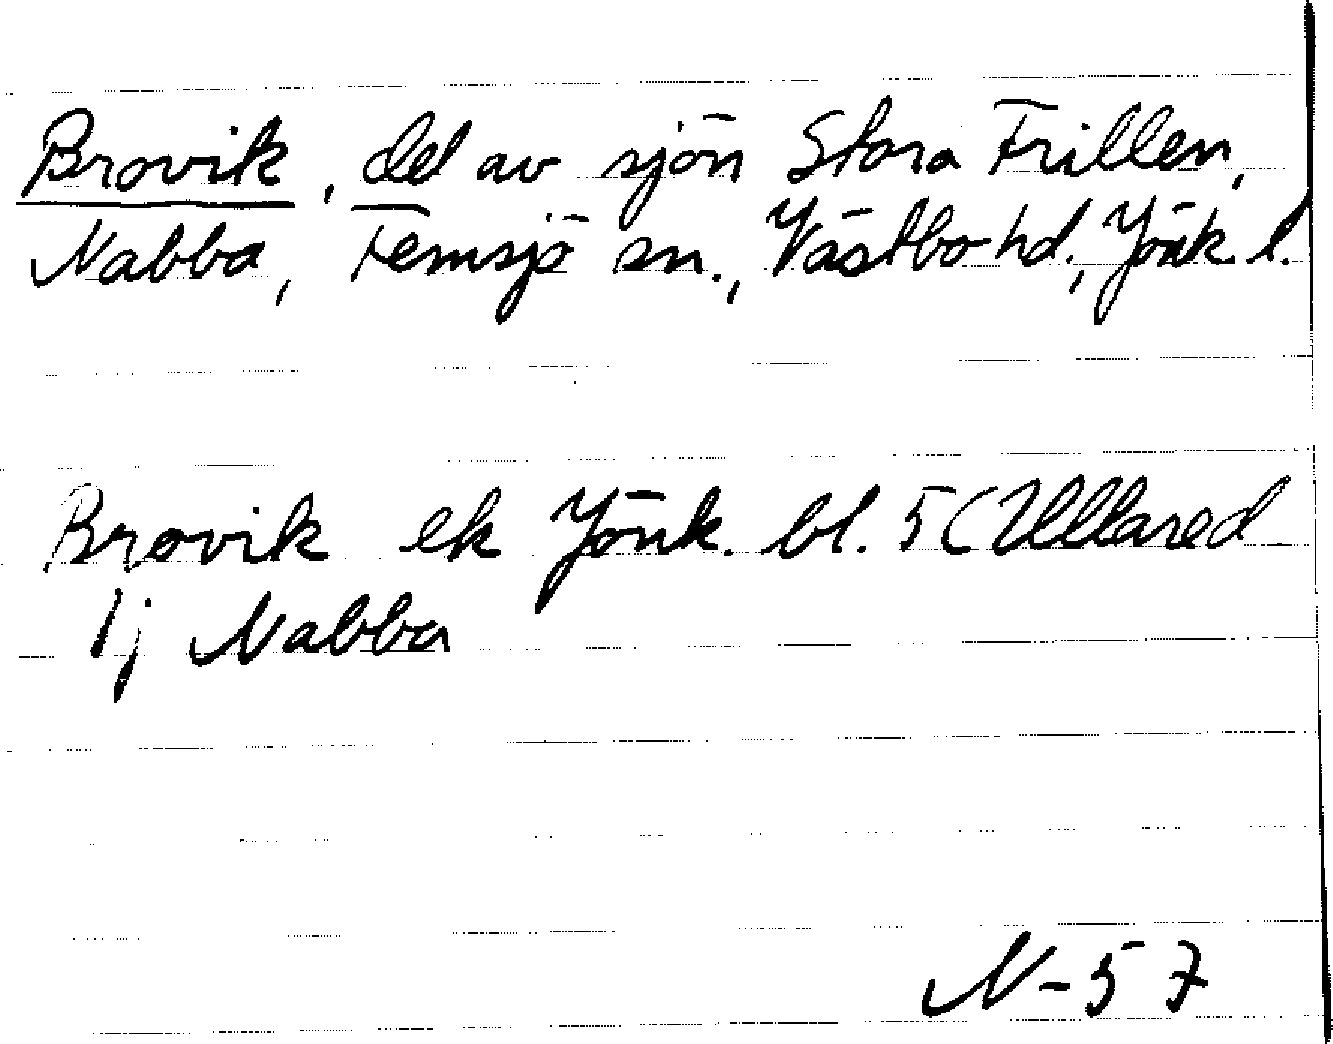 Brovik, del av sjön Stora Frillen,
Nabba, Femsjö sn., Västbo hd., Jönk. l.
Brovik ek Jönk. bl. 5 (Ullared
lj Nabba
N-57